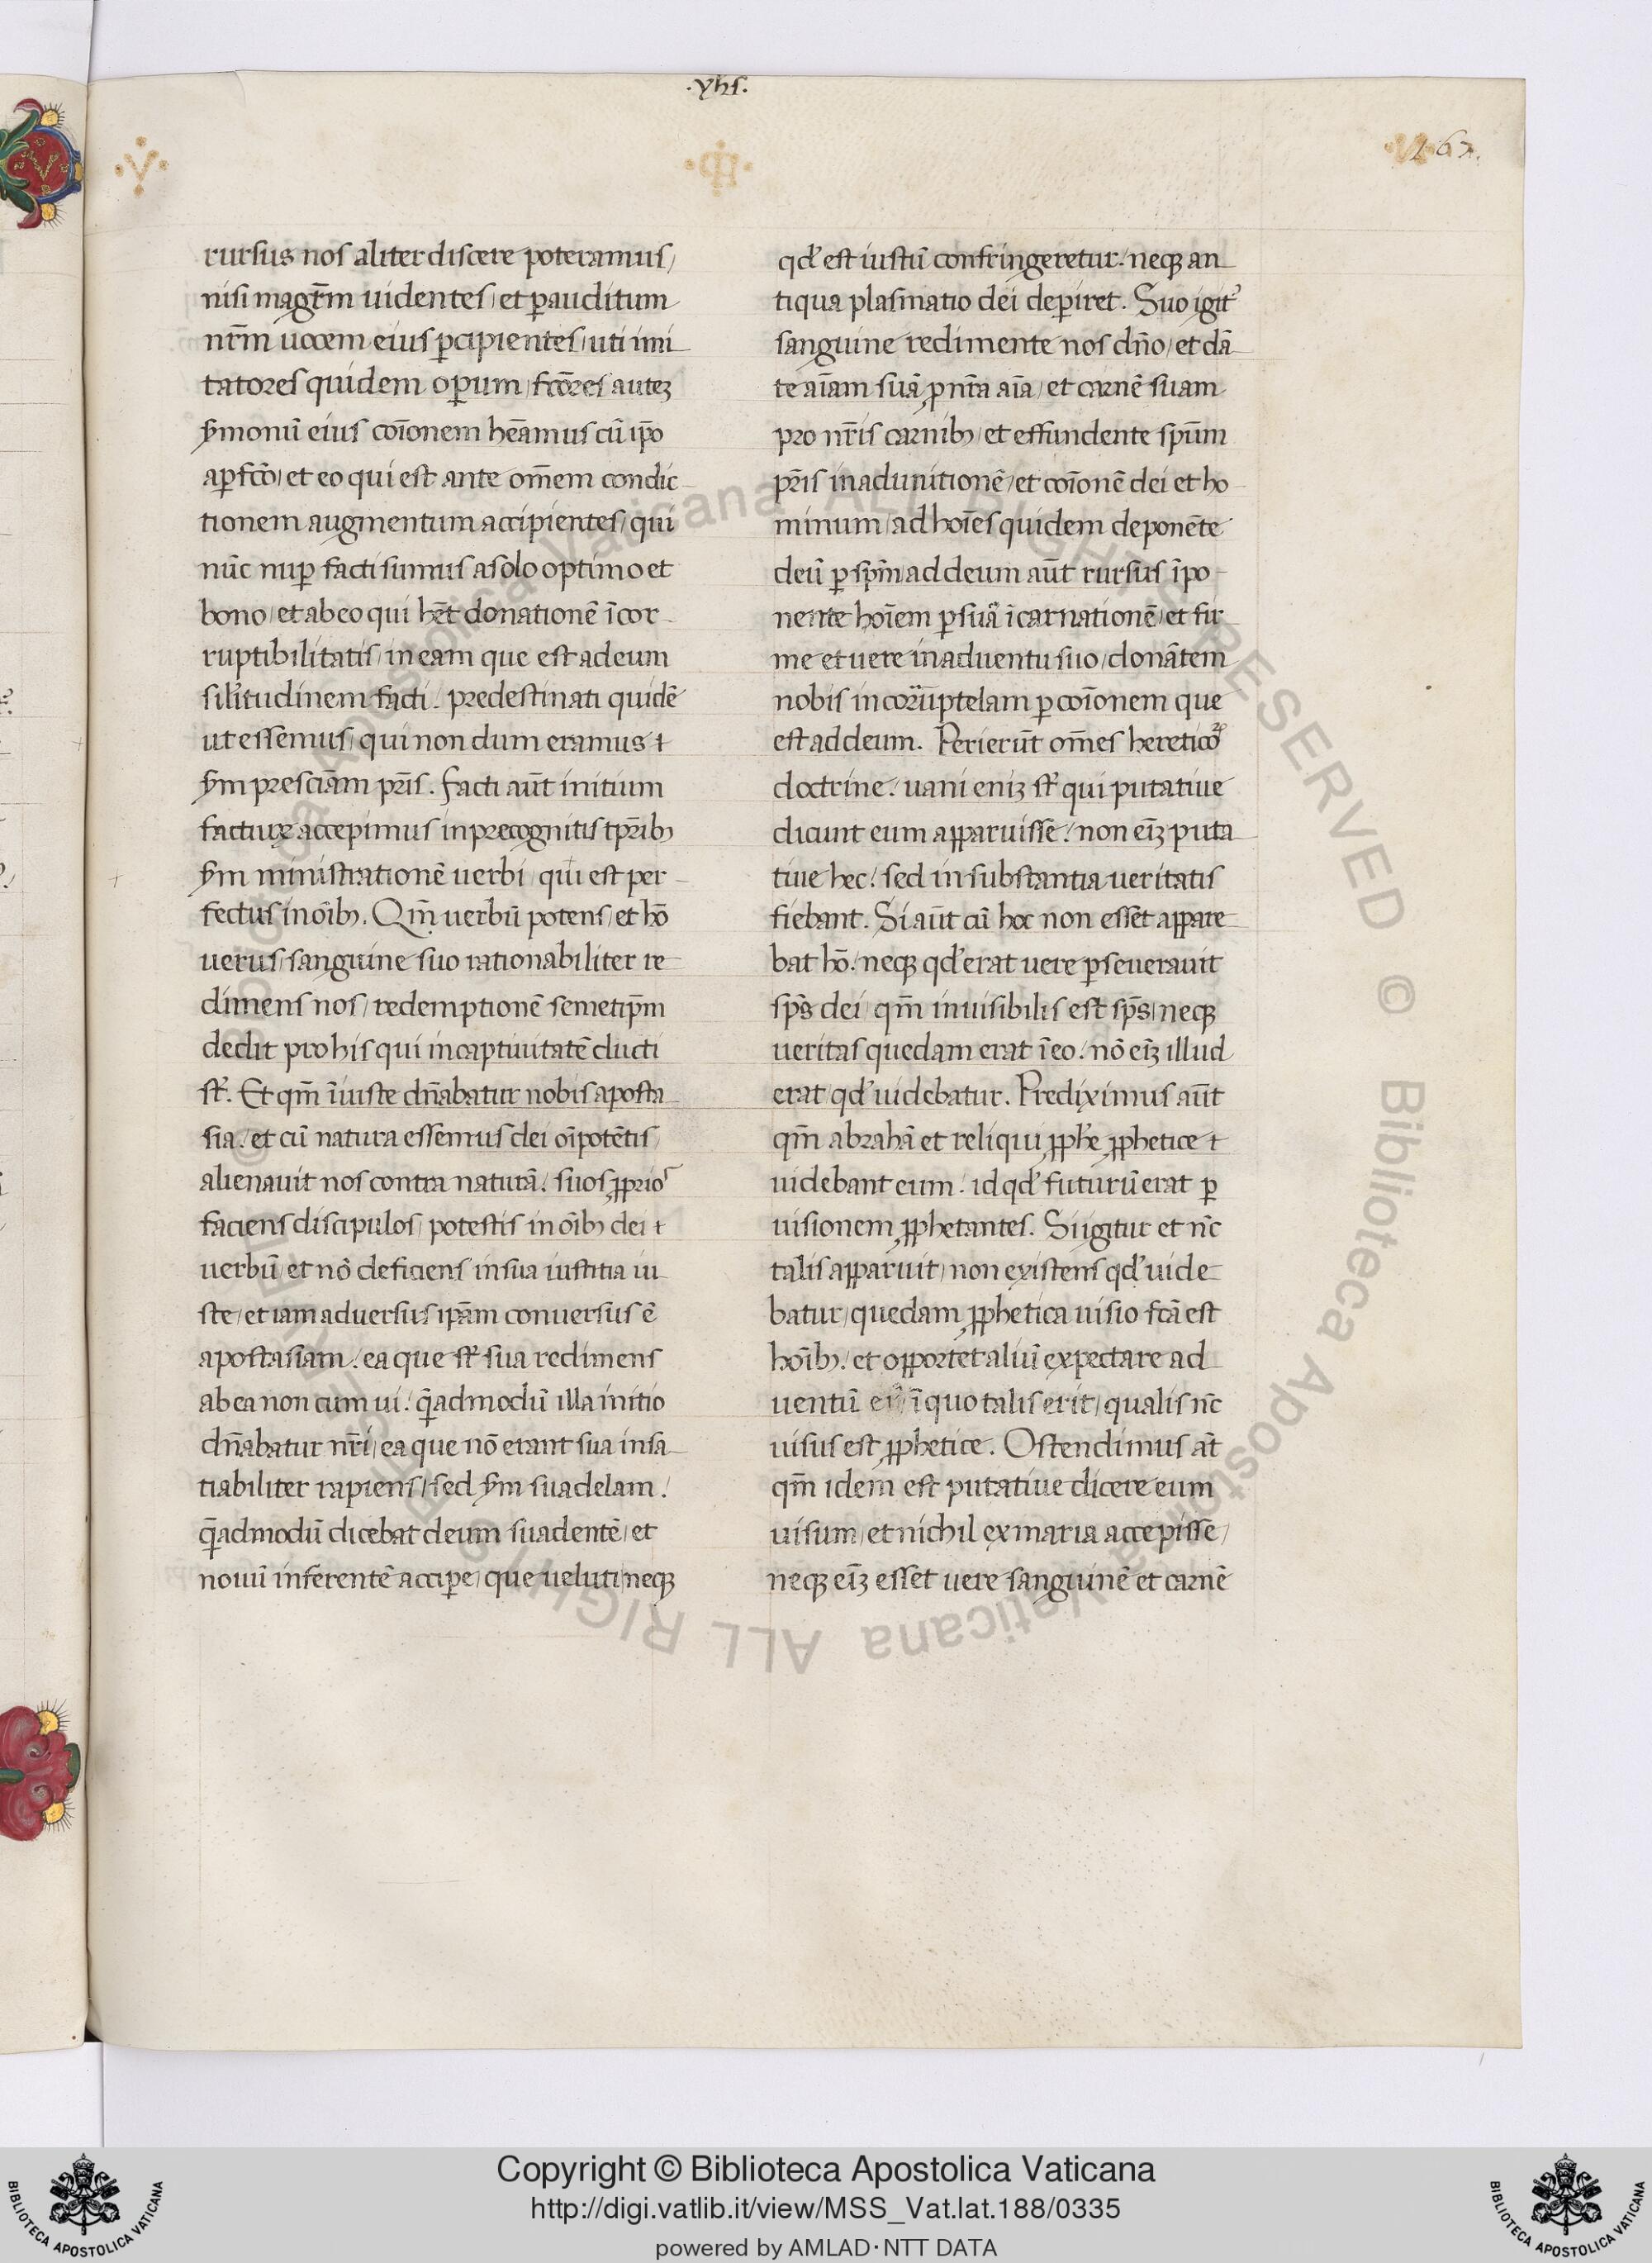 .yhs.
.V.
167.
rursus nos aliter discere poteramus/
nisi magr̄m uidentes/ et ꝑ auditum
nr̄m uocem eius ꝑcipientes/ uti imi
tatores quidem oꝑum/ fcōres auteꝫ
ẜmonū eius coīonem heāmus cū ip̄o
a ꝑfcō/ et eo qui est ante om̄em condic
tionem augmentum accipientes/ qui
nūc nuꝑ facti sumus a solo optimo et
bono/ et ab eo qui hēt donationē īcor
ruptibilitatis/ in eam que est ad eum
silitudinem facti. predestinati quidē
ut essemus/ qui non dum eramus
ẜm presciām pr̄is. facti aūt initium
facture accepimus in precognitis tꝑib᷒
ẜm ministrationē uerbi/ qui est per
fectus in oīb᷒. Qm̄ uerbū potens/ et hō
uerus/ sanguine suo rationabiliter re
dimens nos/ redemptionē semetip̄m
dedit pro his qui in captiuitatē ducti
st̄. Et qm̄ īiuste dn̄abatur nobis aposta
sia/ et cū natura essemus dei oīpotētis/
alienauit nos contra naturā/ suos ꝓprios
faciens discipulos/ potestis in oīb᷒ dei
uerbū/ et nō deficiens in sua iustitia iu
ste/ et iam aduersus ip̄am conuersus ē
apostasiam/ ea que st̄ sua redimens
ab ea non cum ui/ q̄admodū illa initio
dn̄abatur nr̄i/ ea que nō erant sua insa
tiabiliter rapiens/ sed ẜm suadelam/
q̄admodū dicebat deum suadentē/ et
nouū inferentē acciꝑe/ que ueluti neqꝫ
qđ est iustū confringeretur/ neqꝫ an
tiqua plasmatio dei deꝑiret. Suo igit᷑
sanguine redimente nos dn̄o/ et dā
te aīam suā ꝓ nr̄a aīa/ et carnē suam
pro nr̄is carnib᷒/ et effundente spūm
pr̄is in adunitionē/ et coīonē dei et ho
minum/ ad hoīes quidem deponēte
deū ꝑ sp̄m ad deum aūt rursus īpo
nente hoīem ꝑ suā īcarnationē/ et fir
me et uere in aduentu suo/ donātem
nobis incorruptelam ꝑ coīonem que
est ad deum. Perierūt om̄es hereticoꝝ
doctrine/ uani eniꝫ st̄ qui putatiue
dicunt eum apparuisse/ non eīꝫ puta
tiue hec/ sed in substantia ueritatis
fiebant. Si aūt cū hoc non esset appare
bat hō/ neqꝫ qđ erat uere ꝑseuerauit
sp̄s dei/ qm̄ inuisibilis est sp̄s/ neqꝫ
ueritas quedam erat ī eo/ nō eīꝫ illud
erat qđ uidebatur. Prediximus aūt
qm̄ abrahā et reliqui ꝓphe ꝓphetice
uidebant eum/ id qđ futurū erat ꝑ
uisionem ꝓphetantes. Si igitur et nc̄
talis apparuit/ non existens qđ uide
batur/ quedam ꝓphetica uisio fcā est
hoīb᷒/ et opportet aliū expectare ad
uentū ei᷒/ ī quo talis erit/ qualis nc̄
uisus est ꝓphetice. Ostendimus āt
qm̄ idem est putatiue dicere eum
uisum/ et nichil ex maria accepisse/
neqꝫ eīꝫ esset uere sanguinē et carnē
Copyright © Biblioteca Apostolica Vaticana
http://digi.vatlib.it/view/MSS_Vat.lat.188/0335
powered by AMLAD·NTT DATA
BIBLIOTECA APOSTOLICA VATICANA
BIBLIOTECA APOSTOLICA VATICANA
© Biblioteca Apostolica Vaticana ALL RIGHTS RESERVED © Biblioteca Apostolica Vaticana ALL RIGHTS RESERVED